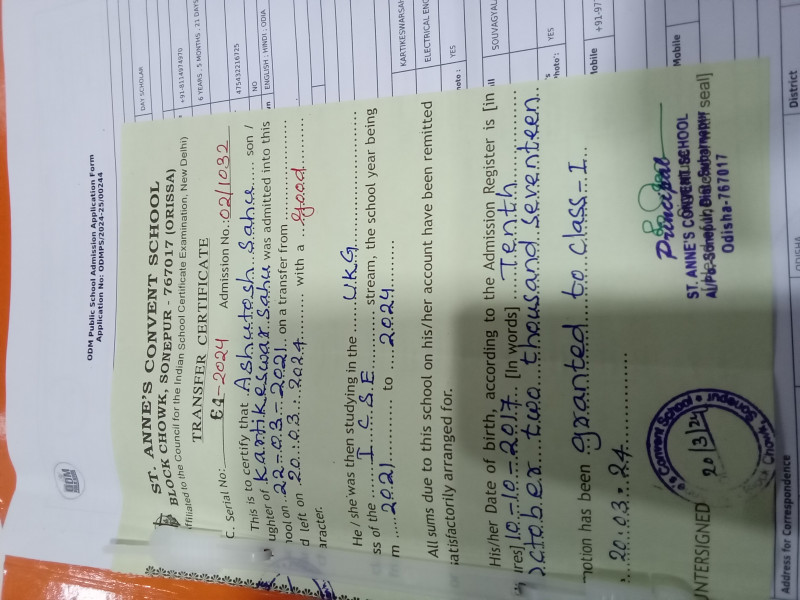 ODM Public School Admission Application Form
Application No: ODMPS/2024-25/00244
DAY SCHOLAR
+91-8114974970
6 YEARS : 5 MONTHS : 21 DAYS
475432216725
NO
ENGLISH : HINDI : ODIA
KARTIKESWAR SAHU
ELECTRICAL ENG
YES
SOUVAGYAL
YES
+91-97
ST. ANNE'S CONVENT SCHOOL
BLOCK CHOWK, SONEPUR - 767017 (ORISSA)
ffiliated to the Council for the Indian School Certificate Examination, New Delhi)
TRANSFER CERTIFICATE
C. Serial No: 21-2024 Admission No.: 02/1032
This is to certify that Ashutosh Sahu son /
ughter of Kartikeswar Sahu was admitted into this
hool on 22-03-2021 on a transfer from
d left on 20.03.2024 with a good
aracter.
He / she was then studying in the U.K.G
ss of the I.C.S.E stream, the school year being
m 2021 to 2024
All sums due to this school on his/her account have been remitted
satisfactorily arranged for.
His/her Date of birth, according to the Admission Register is [in
ures] 10-10-2017 [In words] Tenth
October two thousand seventeen
notion has been granted to class-I
20.03.24
Principal
ST. ANNE'S CONVENT SCHOOL
At/Po. Sonepur, Dist. Subarnapur
Odisha-767017
seal]
UNTERSIGNED
Convent School
20/3/24
Sonepur
Mobile
Mobile
Address for Correspondence
District
ODISHA